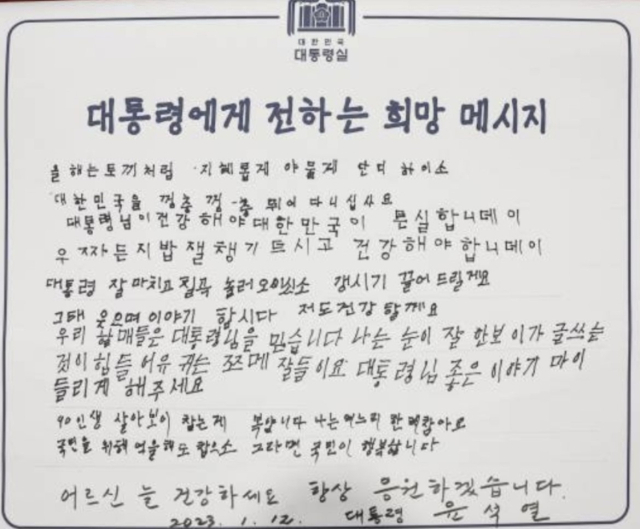 대한민국
대통령실
대통령에게 전하는 희망 메시지
올해는토끼처럼 지혜롭게 야물게 단디 하이소
대한민국을 껑충 껑-충 뛰어 다니십시요
대통령님이건강 해야대한만국이 튼실합니데이
우짜든지밥잘챙기드시고 건강해야합니데이
대통령 잘 마치고 칠곡 놀러 오이소 갱시기 끓어 드릴게요
그때 웃으며 이야기 합시다 저도건강 할께요
우리 할매들은 대통령님을 믿습니다 나는 눈이 잘 안보이가 글쓰는
것이 힘들어유 귀는 쪼메 잘들이요 대통령님 좋은 이야기 마이
들리게 해주세요
90인생 살아보이 참는게 복입니다 나는며느리 한테참아요
국민을 위해 억울해도 참으소 그라면 국민이 행복합니다
어르신 늘 건강하세요 항상 응원하겠습니다.
2023. 1. 12. 대통령 윤석열